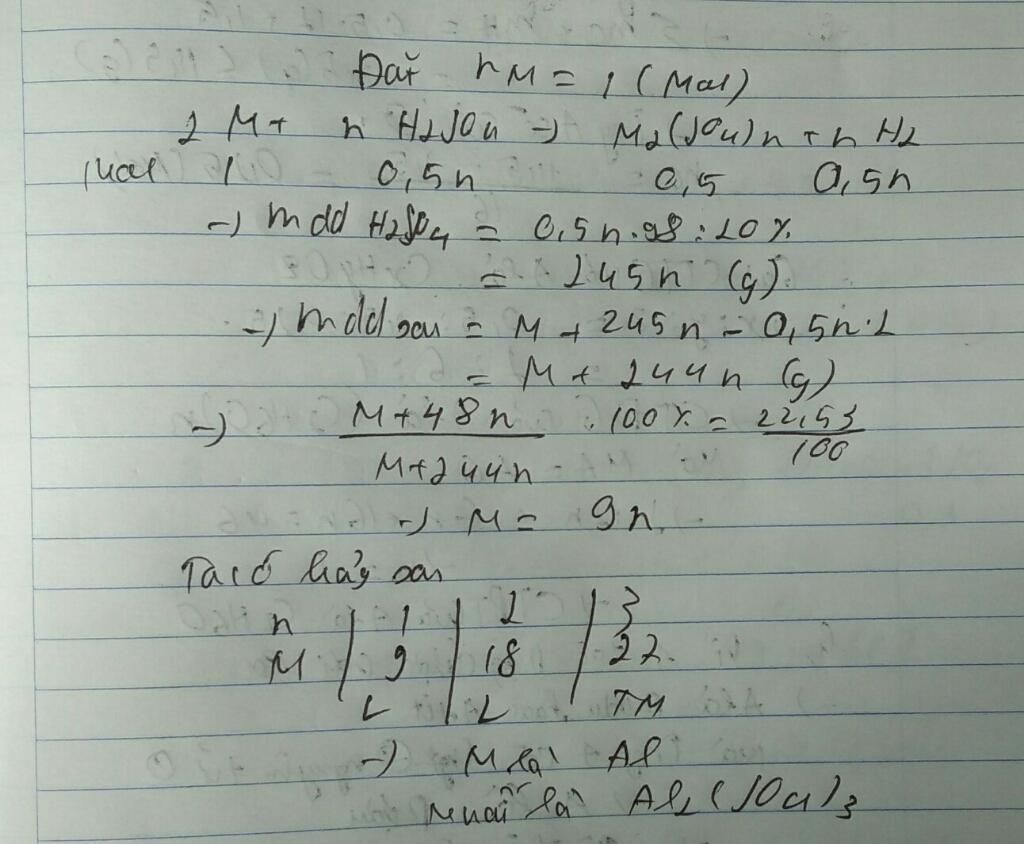 Đặt nM = 1 (mol)
2 M + n H2SO4 → M2(SO4)n + n H2
mol 1 0,5n 0,5 0,5n
→ mdd H2SO4 = 0,5n.98 : 20%
= 245n (g)
→ mdd sau = M + 245n - 0,5n.2
= M + 244n (g)
→ M+48n / M+244n . 100% = 22,53 / 100
→ M = 9n
Ta có bảng sau
n | 1 | 2 | 3
M | 9 | 18 | 27
L L TM
→ M là Al
Muối là Al2(SO4)3